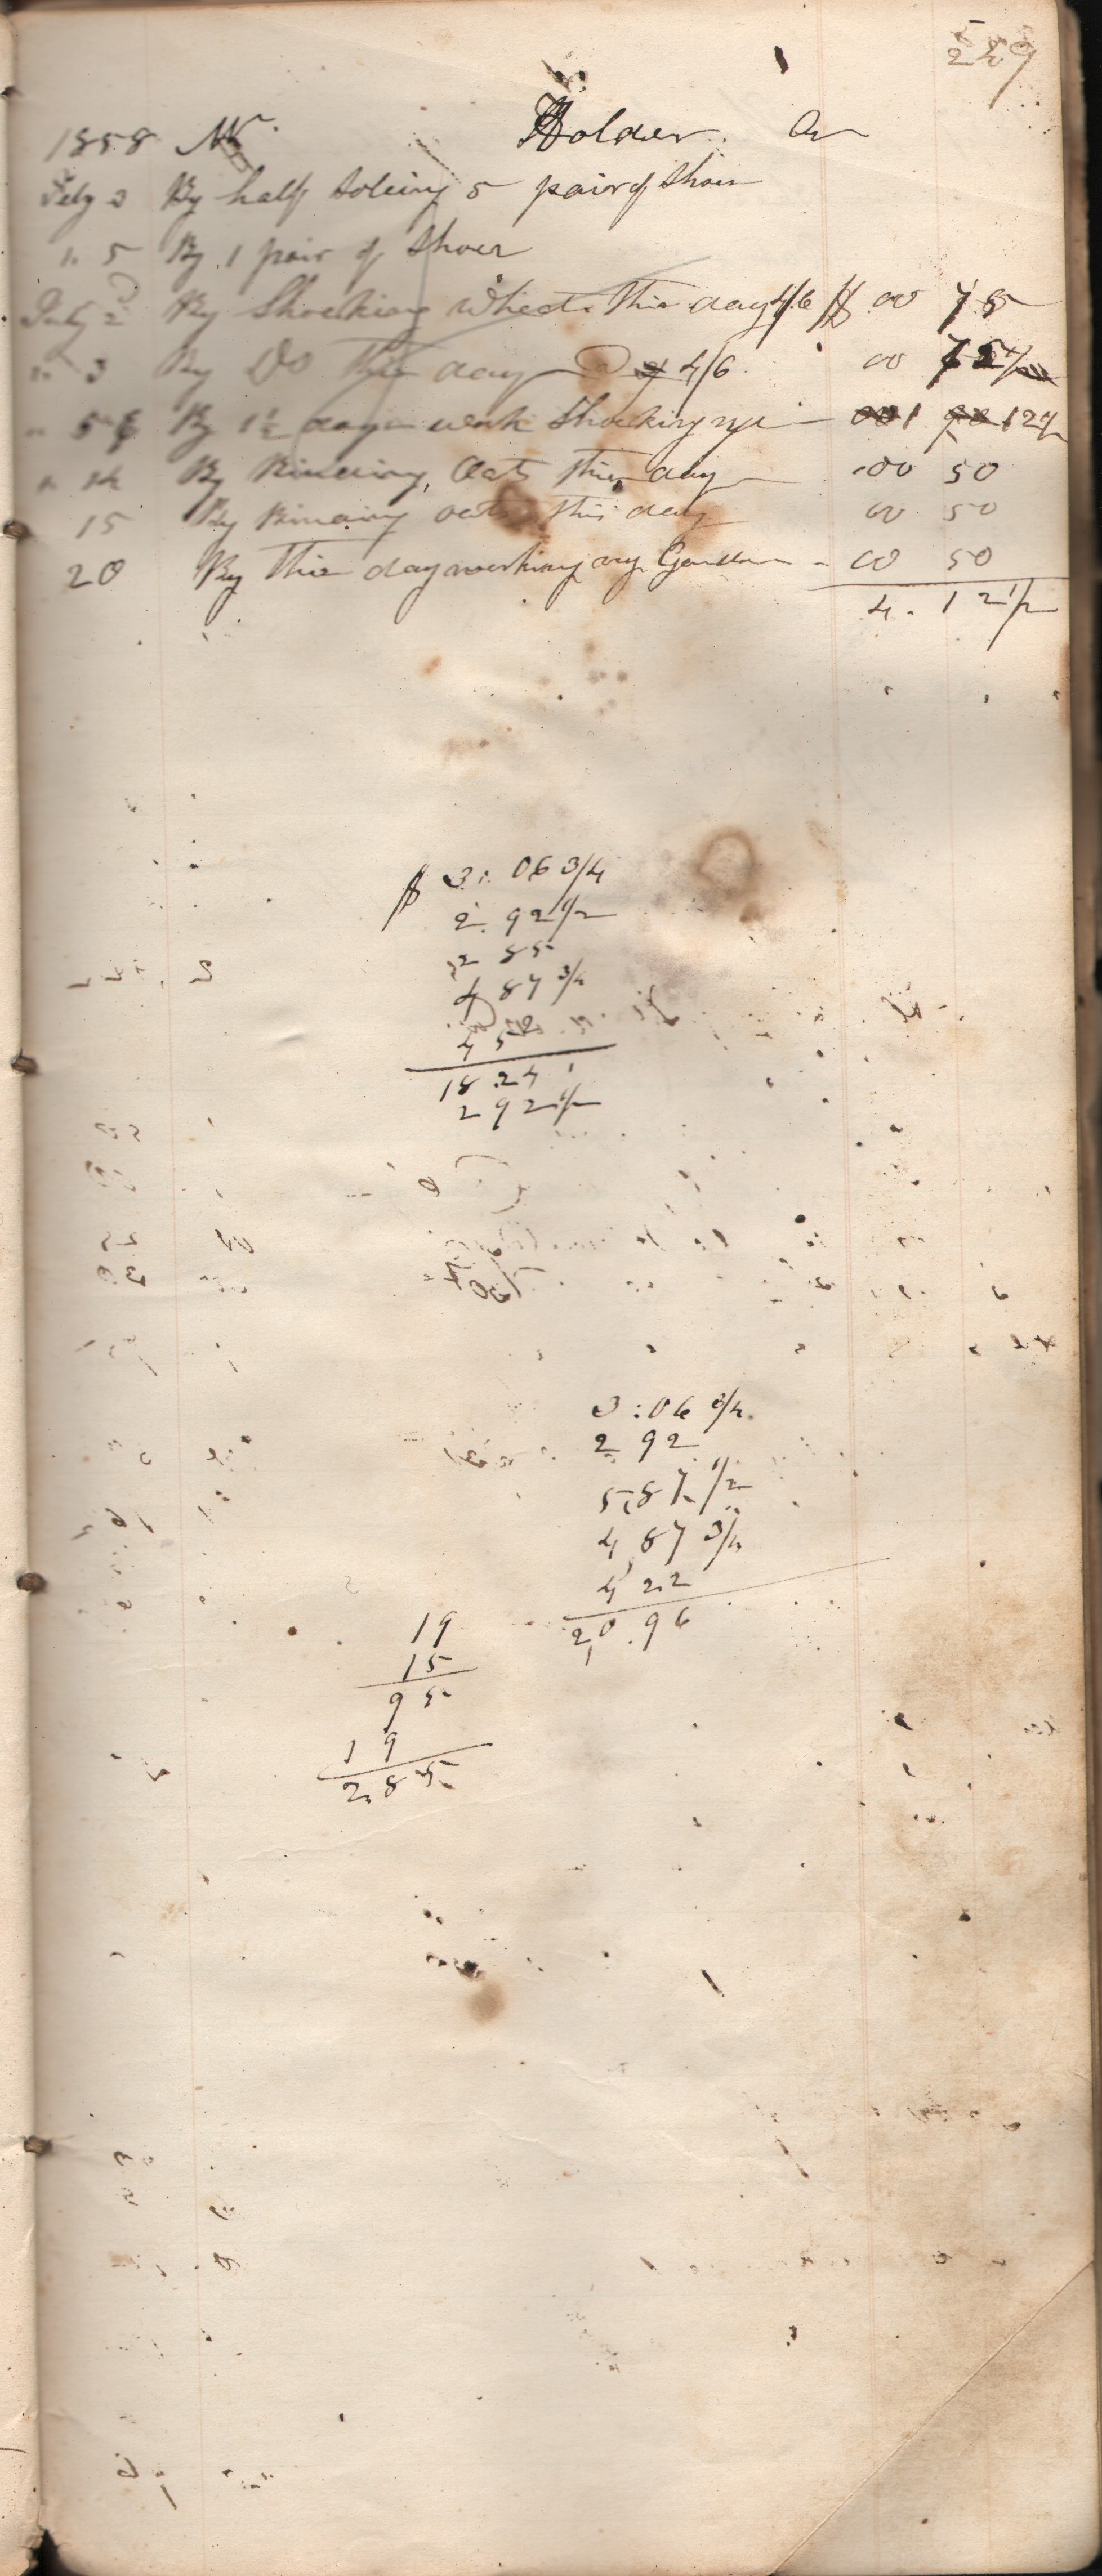 259
1858 Holder Cr
Feby 3 By half soleing 5 pair of Shoes
" 5 By 1 pair of Shoes
July 2 By Shocking Wheat This day 4/6 $ 00 75
" 3 By Do This day @ 4/6 00 75
" 5 By 1½ days work Shocking rye 1 12½
" 14 By Binding Oats This day 00 50
15 By Binding oats This day 00 50
20 By This day working my Garden 00 50
4. 12½
$ 3: 06 3/4
2. 92 1/2
2 85
4 87 3/4
4 52
18.24
2 92 1/2
3:06 3/4
2 92
5,87 1/2
4 87 3/4
4 22
20.96
19
15
95
19
2,85